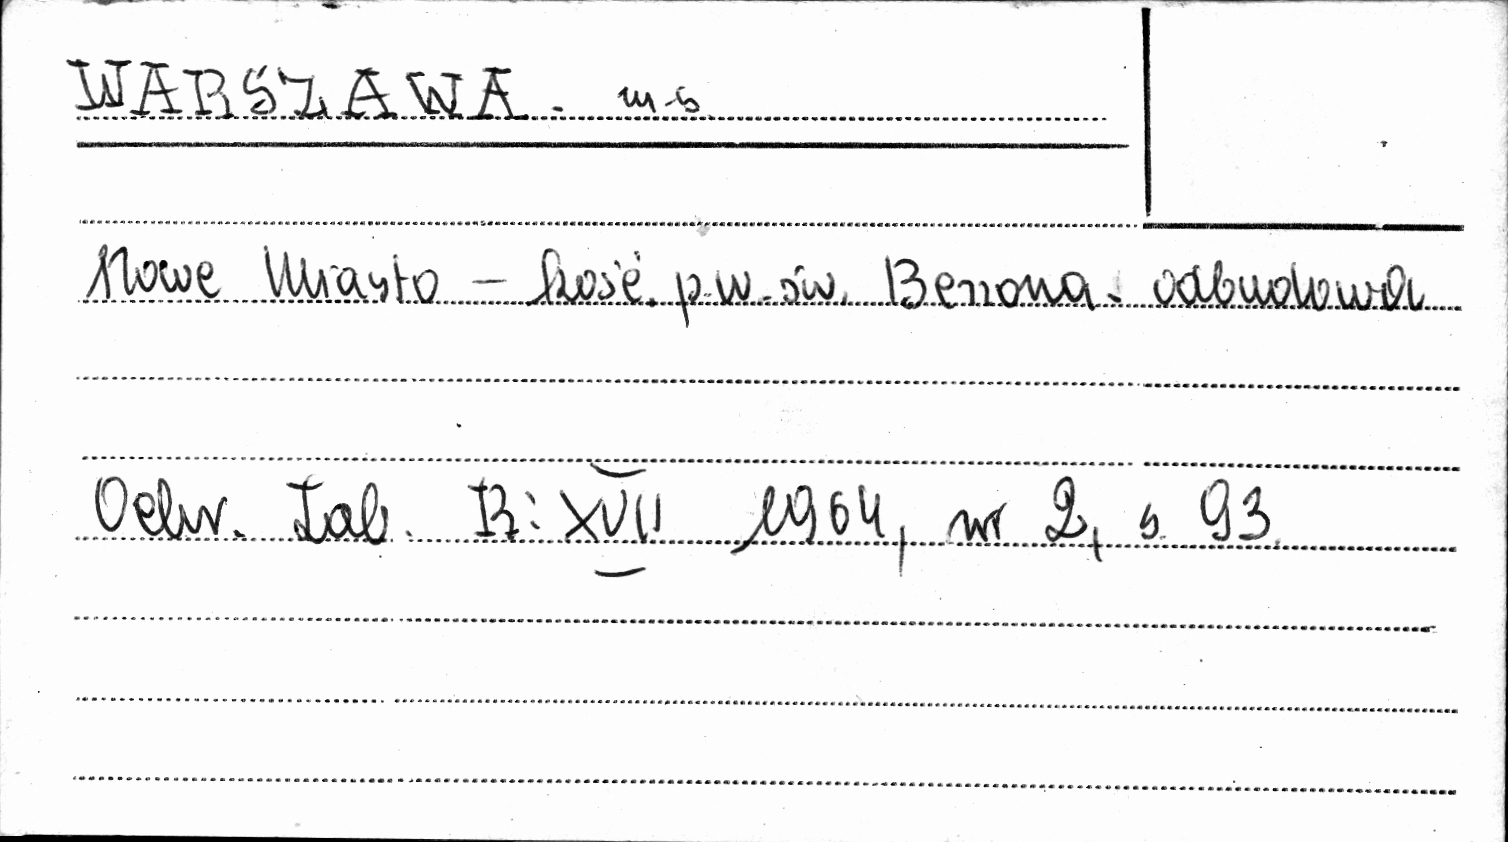 WARSZAWA. m-s.
Nowe Miasto – kość. p.w. św. Benona. odbudowa
Ochr. Zab. R: XVII 1964, nr 2, s. 93.